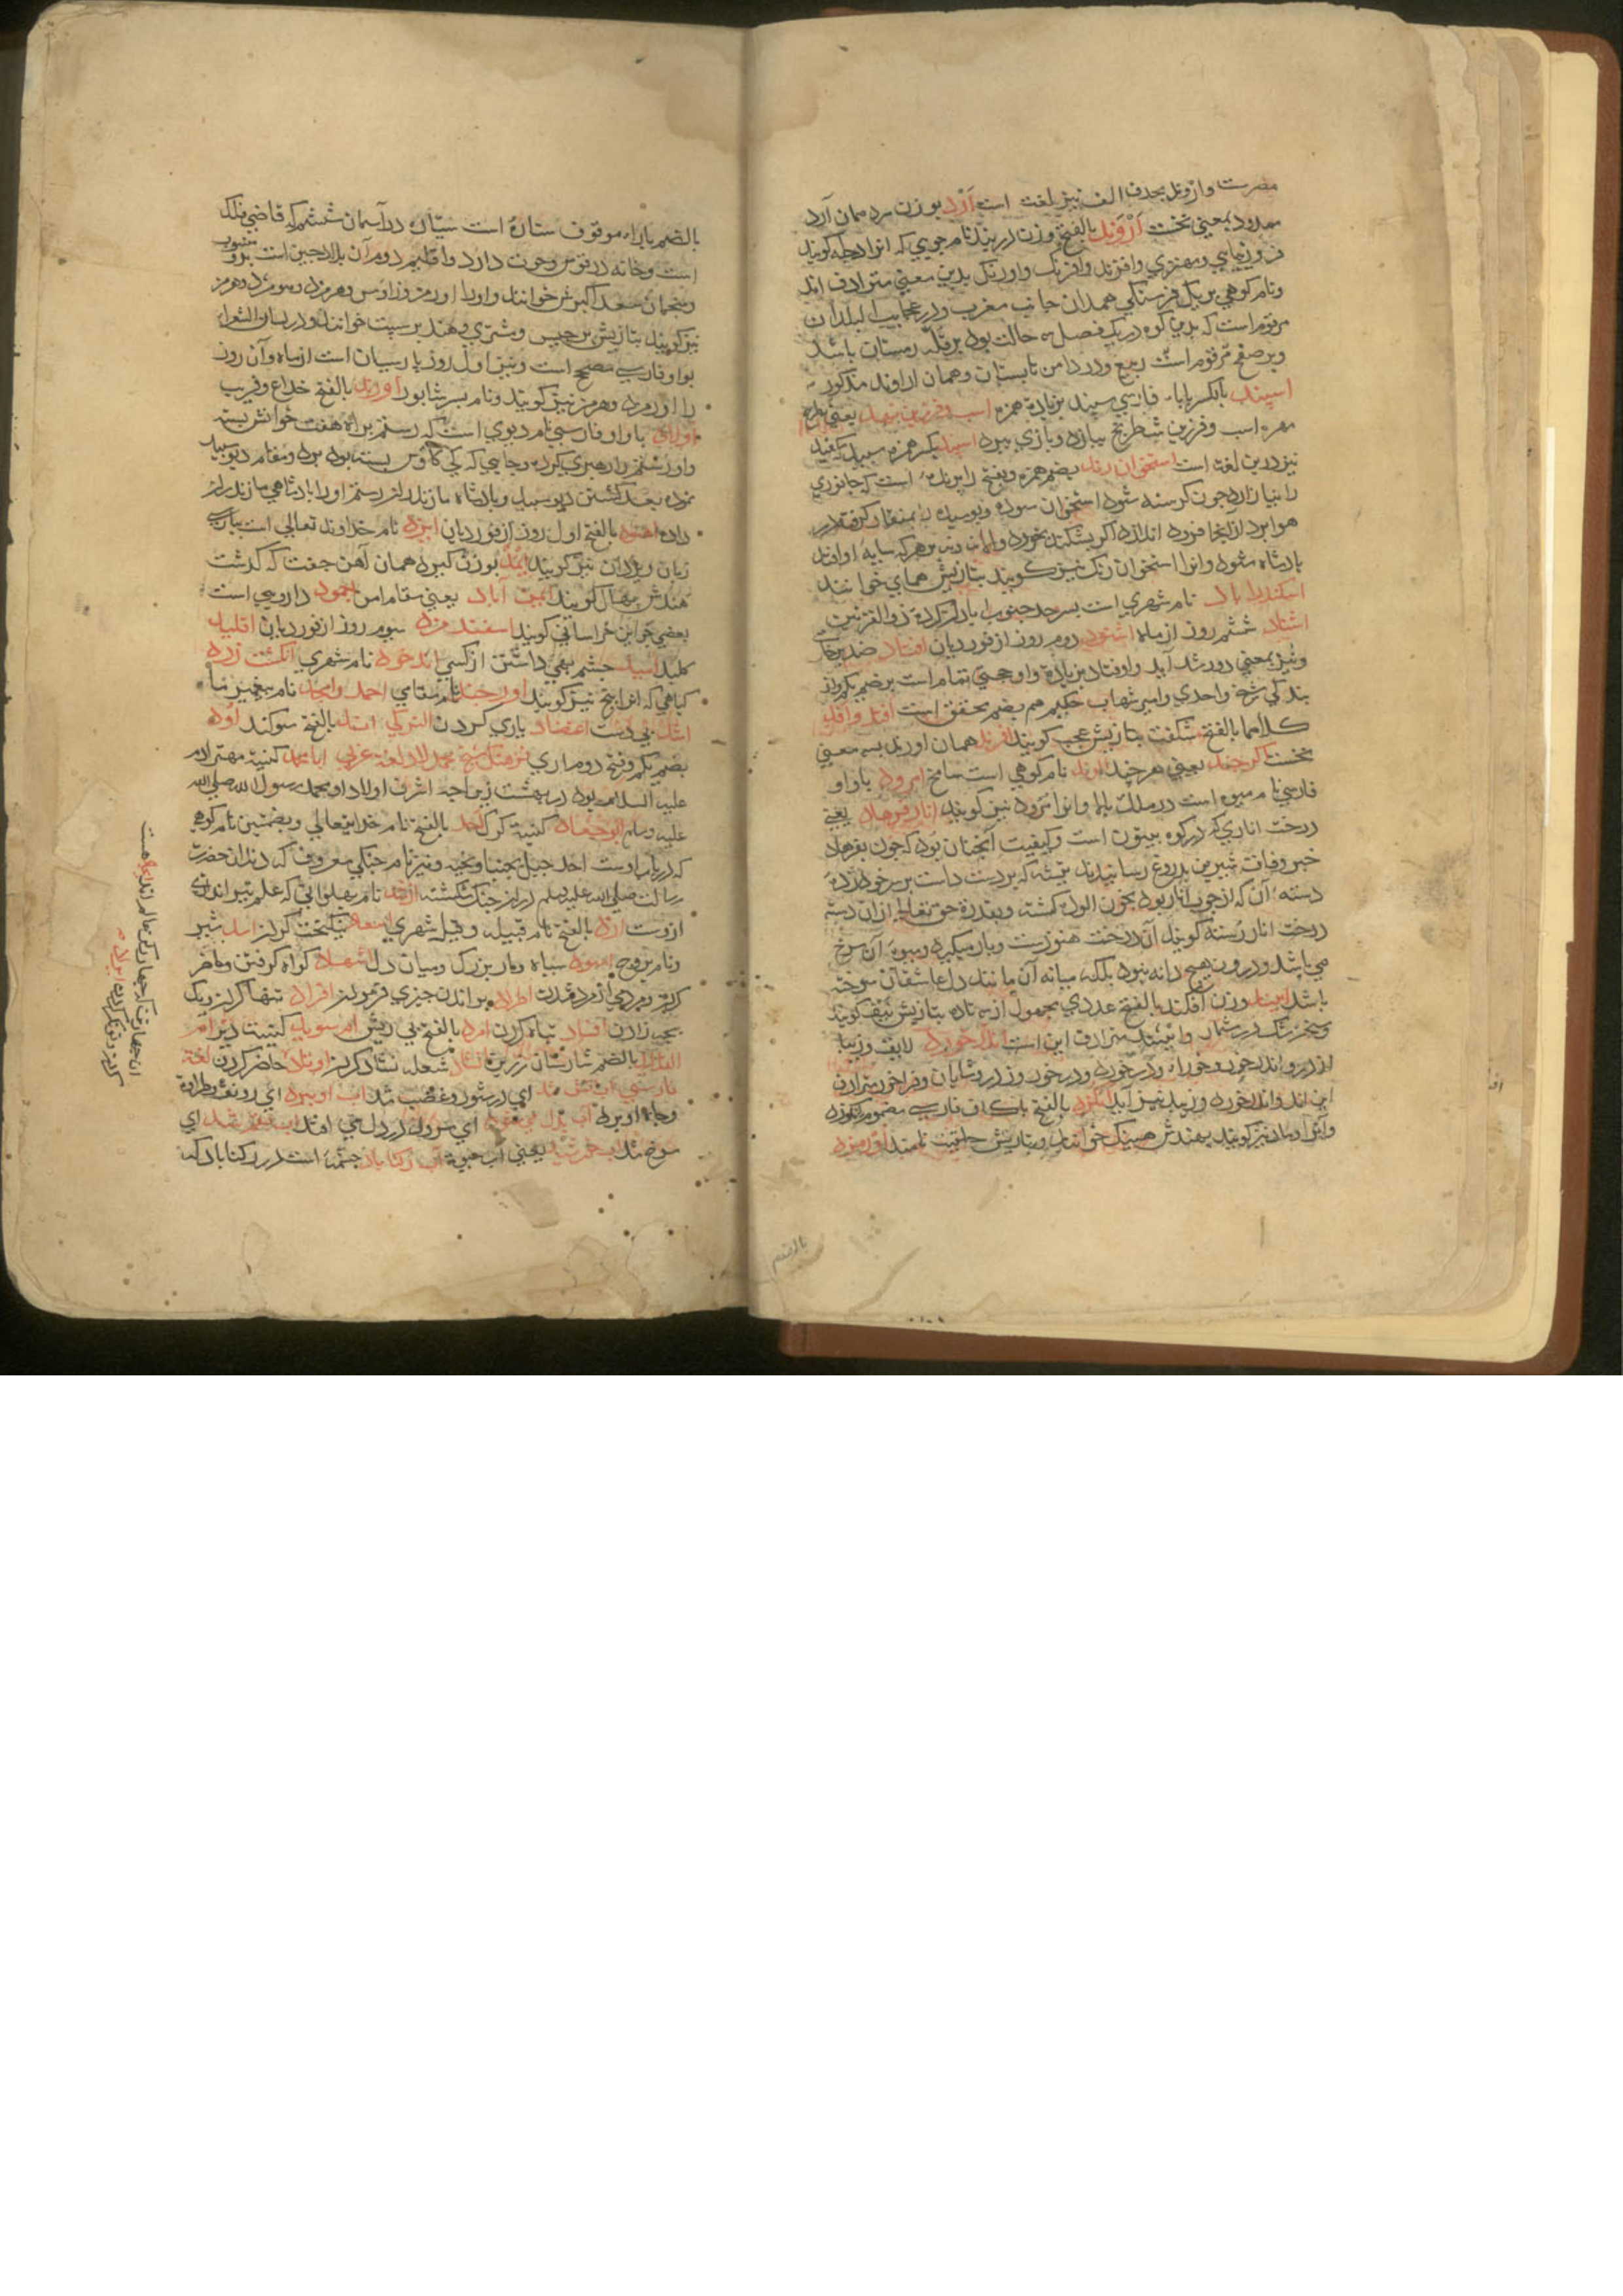 مصرست وازوند بحذف الف نیز لغت است آزد بوزن سرد همان آرد
ممدود بمعنی نخست اَرْوَند بالفتح وزن دربند نام جویی که انرا دجله کویند
فر وزیبایی ومهتری وافرند وافرنک واورنک بدین معنی مترادف اند
ونام کوهی بریک فرسنکی همدان جانب مغرب ودر عجایب البلدان
مرقوم است که بدین کوه در یک فصل سه حالت بود بر قله زمستان باشد
وبر صفح مرقوم است ربیع ودر دامن تابستان وهمان اراوند مذکور
اسپند بالکسر باباء فارسی سپند بزیادة همزه اسب وفرزین نهد یعنی بازه
مهره اسب وفرزین شطرنج ببازد وبازی ببرد اسپید بکسر همزه سپید که سفید
نیز درین لغت است استخوان رند بضم همزه وبفتح را پرنده است که جانوری
را نیازارد چون کرسنه شود استخوان سوده وپوسیده را بمنقار کرفته در
هوا برد از انجا فرود اندازد اکر بشکند بخورد والا نه وبر هر که سایه او افتد
پادشاه شود وانرا استخوان رنک نیز کویند بتازیش همای خوانند
اسکندراباد نام شهری است بسرحد جنوب اباد کرده ذوالقرنین
اشتاد ششم روز از ماه اشتود دوم روز از فوردیان افتاد ضد برخاست
ونیز بمعنی دور شد آید واوفتاد بزیادة واو حجتی تمام است بر ضم یکم واز
بندکی شیخ واحدی وامیر شهاب حکیم هم بضم محقق است افد وافدا
کلاهما بالفتح شکفت بتازیش عجب کویند افرند همان اورند بسه معنی
نخست اکرچند یعنی هرچند الوند نام کوهی است شامخ امرود باواو
فارسی نام میوه است در ملک بالا وانرا مرود نیز کویند انار فرهاد یعنی
درخت اناری که در کوه بیستون است وکیفیت آنچنان بود که چون بفرهاد
خبر وفات شیرین بدروغ رسانیدند تیشه که بردست داشت بر سر خود زد
دسته آن که از چوب انار بود بخون آلوده کشته وبقدرة حق تعالی ازان دسته
درخت انار رسته کویند آن درخت هنوزست وبار میکیرد ومیوه آن سرخ
می باشد ودرون هیچ دانه نبود بلکه میانه آن مانند دل عاشقان سوخته
باشد اند وزن افکند بالفتح عددی مجهول از سه تا ده بتازیش نیف کویند
وسخن شک در شمار واینند مترادف این است اندخورد لایق وزیبا
اندر واندخور وخوراء ودرخورد ودرخور ودر وشایان وفراخور مترادف
این اند واندرخورد وزیبد نیز آید انکژد بالفتح باکاف فارسی مضموم انکوزه
وآنرا ومان نیز کویند بهندش هینک خوانند وبتازیش حلتیت نامند اورمزد
بالضم
بالضم بازاء موقوف ستارۀ است سیاره در آسمان ششم که قاضی فلک
است وخانه در قوس وحوت دارد واقلیم دوم آن بلاد چین است بدو منسوب
ومنجمان سعد اکبرش خوانند واورا اورمز وزاوس وهرمزد وهومزد وهرمز
نیز کویند بتازیش برجیس ومشتری وهندبر سپت خوانند ودر لسان الشعرا
بواو فارسی مصحح است ونیز اول روز پارسیان است از ماه وآن روز
را اورمزد وهرمز نیز کویند ونام پسر شاپور اورند بالفتح خداع وفریب
اولاد باواو فارسی نام دیوی است که رستم براه هفت خوانش بسته
واو رستم را رهبری کرده وجایی که کی کاوس بسته بود برد ومقام دیو سپید
نموده بعد کشتن دیو سپید وپادشاه مازندران رستم اورا پادشاهی مازندران
داده اهنود بالفتح اول روز از فوردیان ایزد نام خداوند تعالی است بپارسی
زبان ویزدان نیز کویند ایمد بوزن کبود همان آهن جفت که کذشت
هندش پهال کویند ایمن آباد یعنی مقام امن اجمود دارویی است
بعضی جواین خراسانی کویند اسفندمزد سیوم روز از فوردیان اقلید
کلید امید چشم بهی داشتن از کسی اندخود نام شهری انکشت زده
کیاهی که انرا بنج نیز کویند اورجند نام ستای احمد وامجد نام پیغمبر ما
اشل بی دست اعتضاد یاری کردن الترکی اند بالفتح سوکند اود
بضم یکم وفتح دوم اری فرهنک شیخ محمد لاد لغة عربی ابامحمد کنیة مهتر آدم
علیه السلام بود در بهشت زیراچه اشرف اولاد او محمد رسول الله صلی الله
علیه وسلم ابوجعاد کنیة کرک احد بالفتح نام خدایتعالی وبضمتین نام کوه
که در باب اوست احد جبل یحبنا ونحبه ونیز نام جنکی معروف که دندان حضرت
رسالت صلی الله علیه وسلم دران جنک شکسته ارفد نام پهلوانی که علم تیراندازی
ازوست ازد بالفتح نام قبیله وقیل شهری اسعد نیکبخت کردن اسد شیر
ونام برج اسود سیاه ومار بزرک ومیان دل اشهاد کواه کرفتن وحاضر
کردن اطراد براندن چیزی فرمودن افراد تنها کردن ویک
بچه زادن افساد تباه کردن امرد بالفتح بی ریش ام سوید کنیت دبر ام
بالضم شارستان زرین شعله اوتاد حاضر کردن لغة
فارسی آتش شد ای در شور وغضب شد اب او ببرد ای رونق وطراوة
وجاه او برد آب بدل می شود ای سرود در دل می افتد اب شد ای
سرخ شد اب خمرشید یعنی آب حیوة آب رکناباد چشمه است در رکناباد که